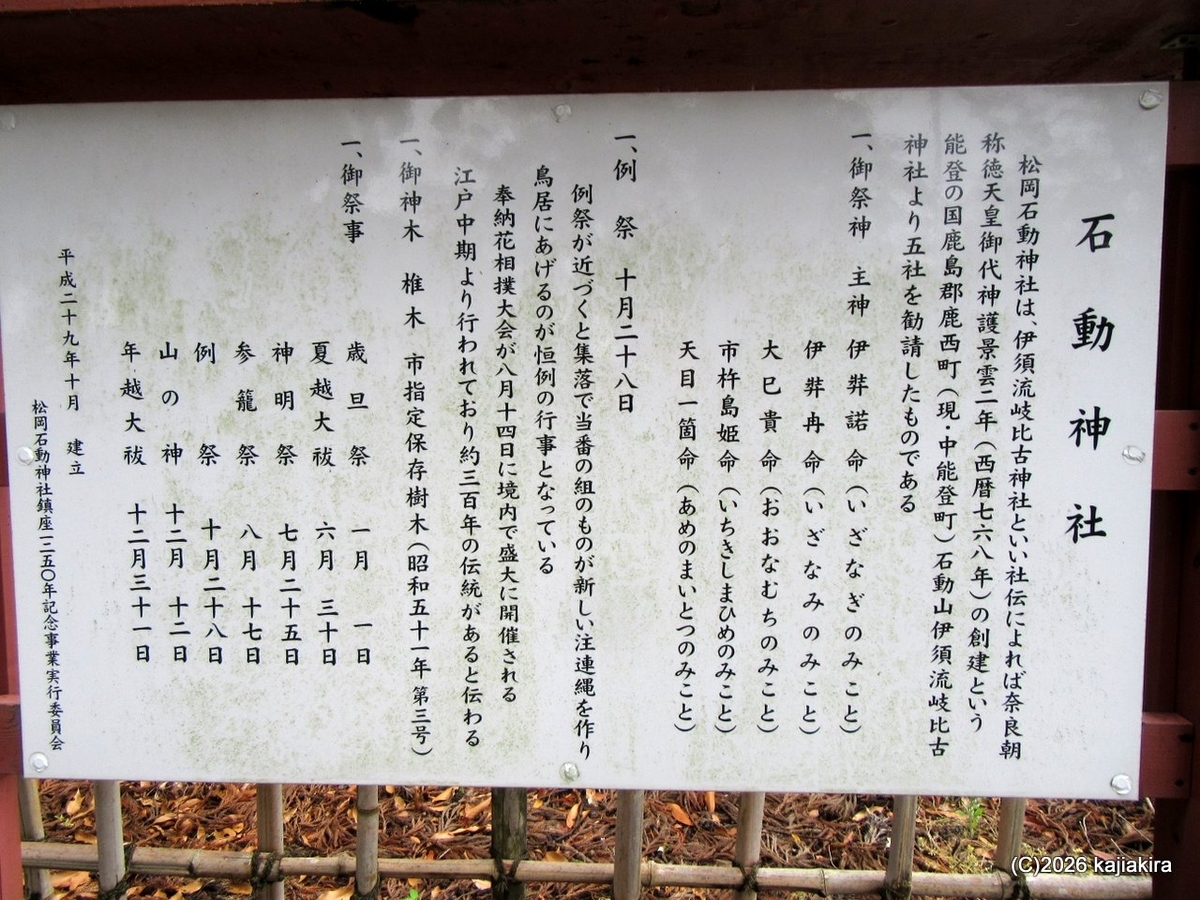 石動神社
松岡石動神社は、伊須流岐比古神社といい社伝によれば奈良朝
称徳天皇御代神護景雲二年（西暦七六八年）の創建という
能登の国鹿島郡鹿西町（現・中能登町）石動山伊須流岐比古
神社より五社を勧請したものである
一、御祭神 主神 伊弉諾命（いざなぎのみこと）
伊弉冉命（いざなみのみこと）
大巳貴命（おおなむちのみこと）
市杵島姫命（いちきしまひめのみこと）
天目一箇命（あめのまいとつのみこと）
一、例祭 十月二十八日
例祭が近づくと集落で当番の組のものが新しい注連縄を作り
鳥居にあげるのが恒例の行事となっている
奉納花相撲大会が八月十四日に境内で盛大に開催される
江戸中期より行われており約三百年の伝統があると伝わる
一、御神木 椎木 市指定保存樹木（昭和五十一年第三号）
一、御祭事 歳旦祭 一月一日
夏越大祓 六月三十日
神明祭 七月二十五日
参籠祭 八月十七日
例祭 十月二十八日
山の神 十二月十二日
年越大祓 十二月三十一日
平成二十九年十月 建立
松岡石動神社鎮座一二五〇年記念事業実行委員会
(C)2026 kajiakira